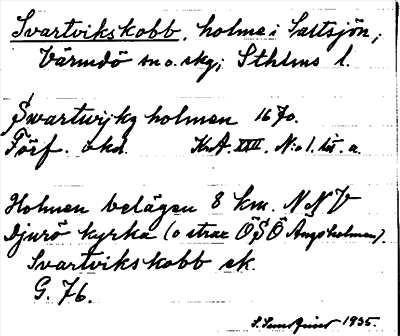 Svartvikskobb, holme i Saltsjön;
Värmdö sn o. skg; Sthlms l.
Swartwijkz holmen 1670.
Förf. okd. KrA. XXII. N:o 1. lit. a.
Holmen belägen 8 km. NNV
Djurö kyrka (o strax ÖSÖ Ängsholmen).
Svartvikskobb ek.
G. 76.
1935.